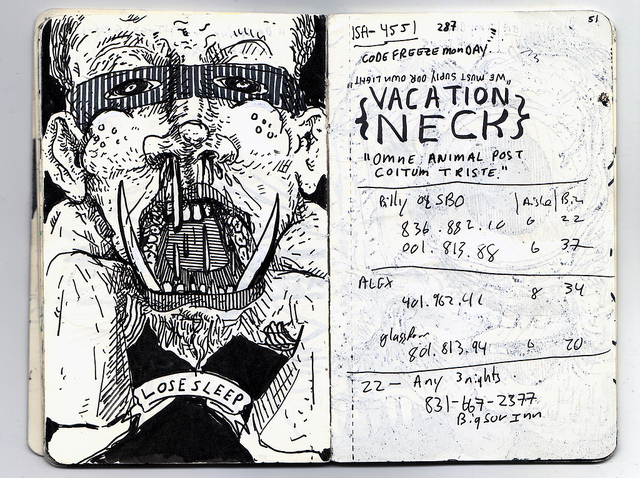 LOSE SLEEP
51
ISA-4551 287
CODE FREEZE MONDAY.
"WE MUST SUPLY OUR OWN LIGHT"
{VACATION
NECK}
"OMNE ANIMAL POST
COITUM TRISTE."
Billy og SBO |Aisle|Bin
836.882.10 6 22
001.813.88 6 37
ALEX
401.962.41 8 34
glassdoor
801.813.94 6 20
22 - Any 3 nights
831-667-2377
Big Sur Inn